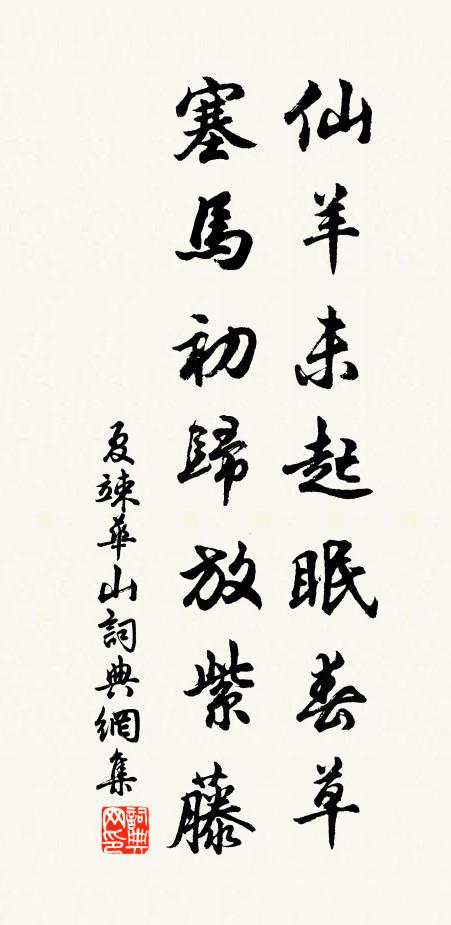 仙羊未起眠春草
塞馬初歸放紫藤
夏竦華山詞典網集
詞典网印